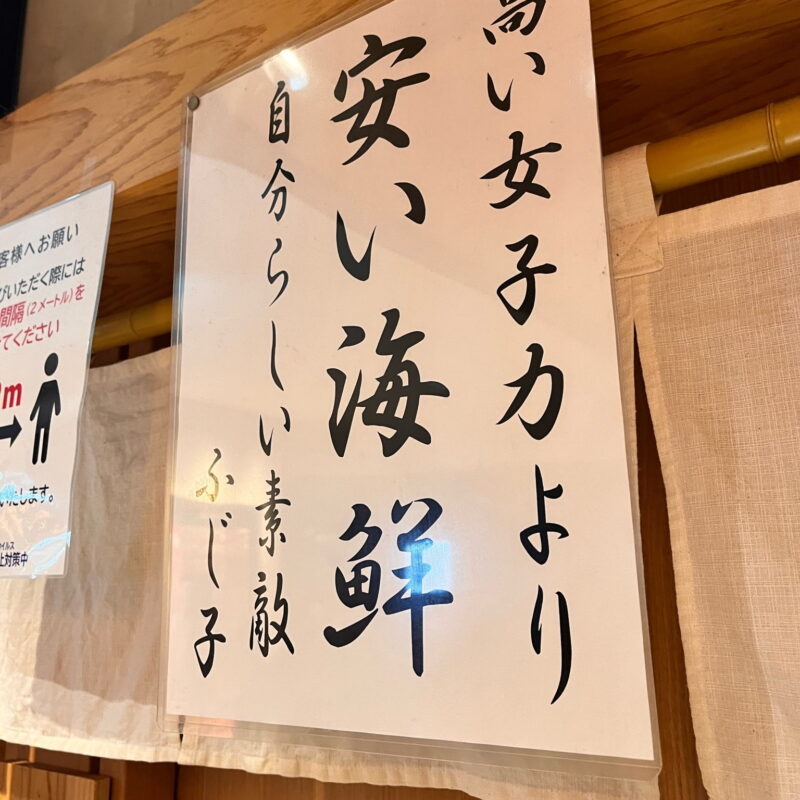 高い女子力より
安い海鮮
自分らしい素敵
ふじ子
客様へお願い
びいただく際には
間隔(2メートル)を
てください
m
いたします。
イルス
止対策中